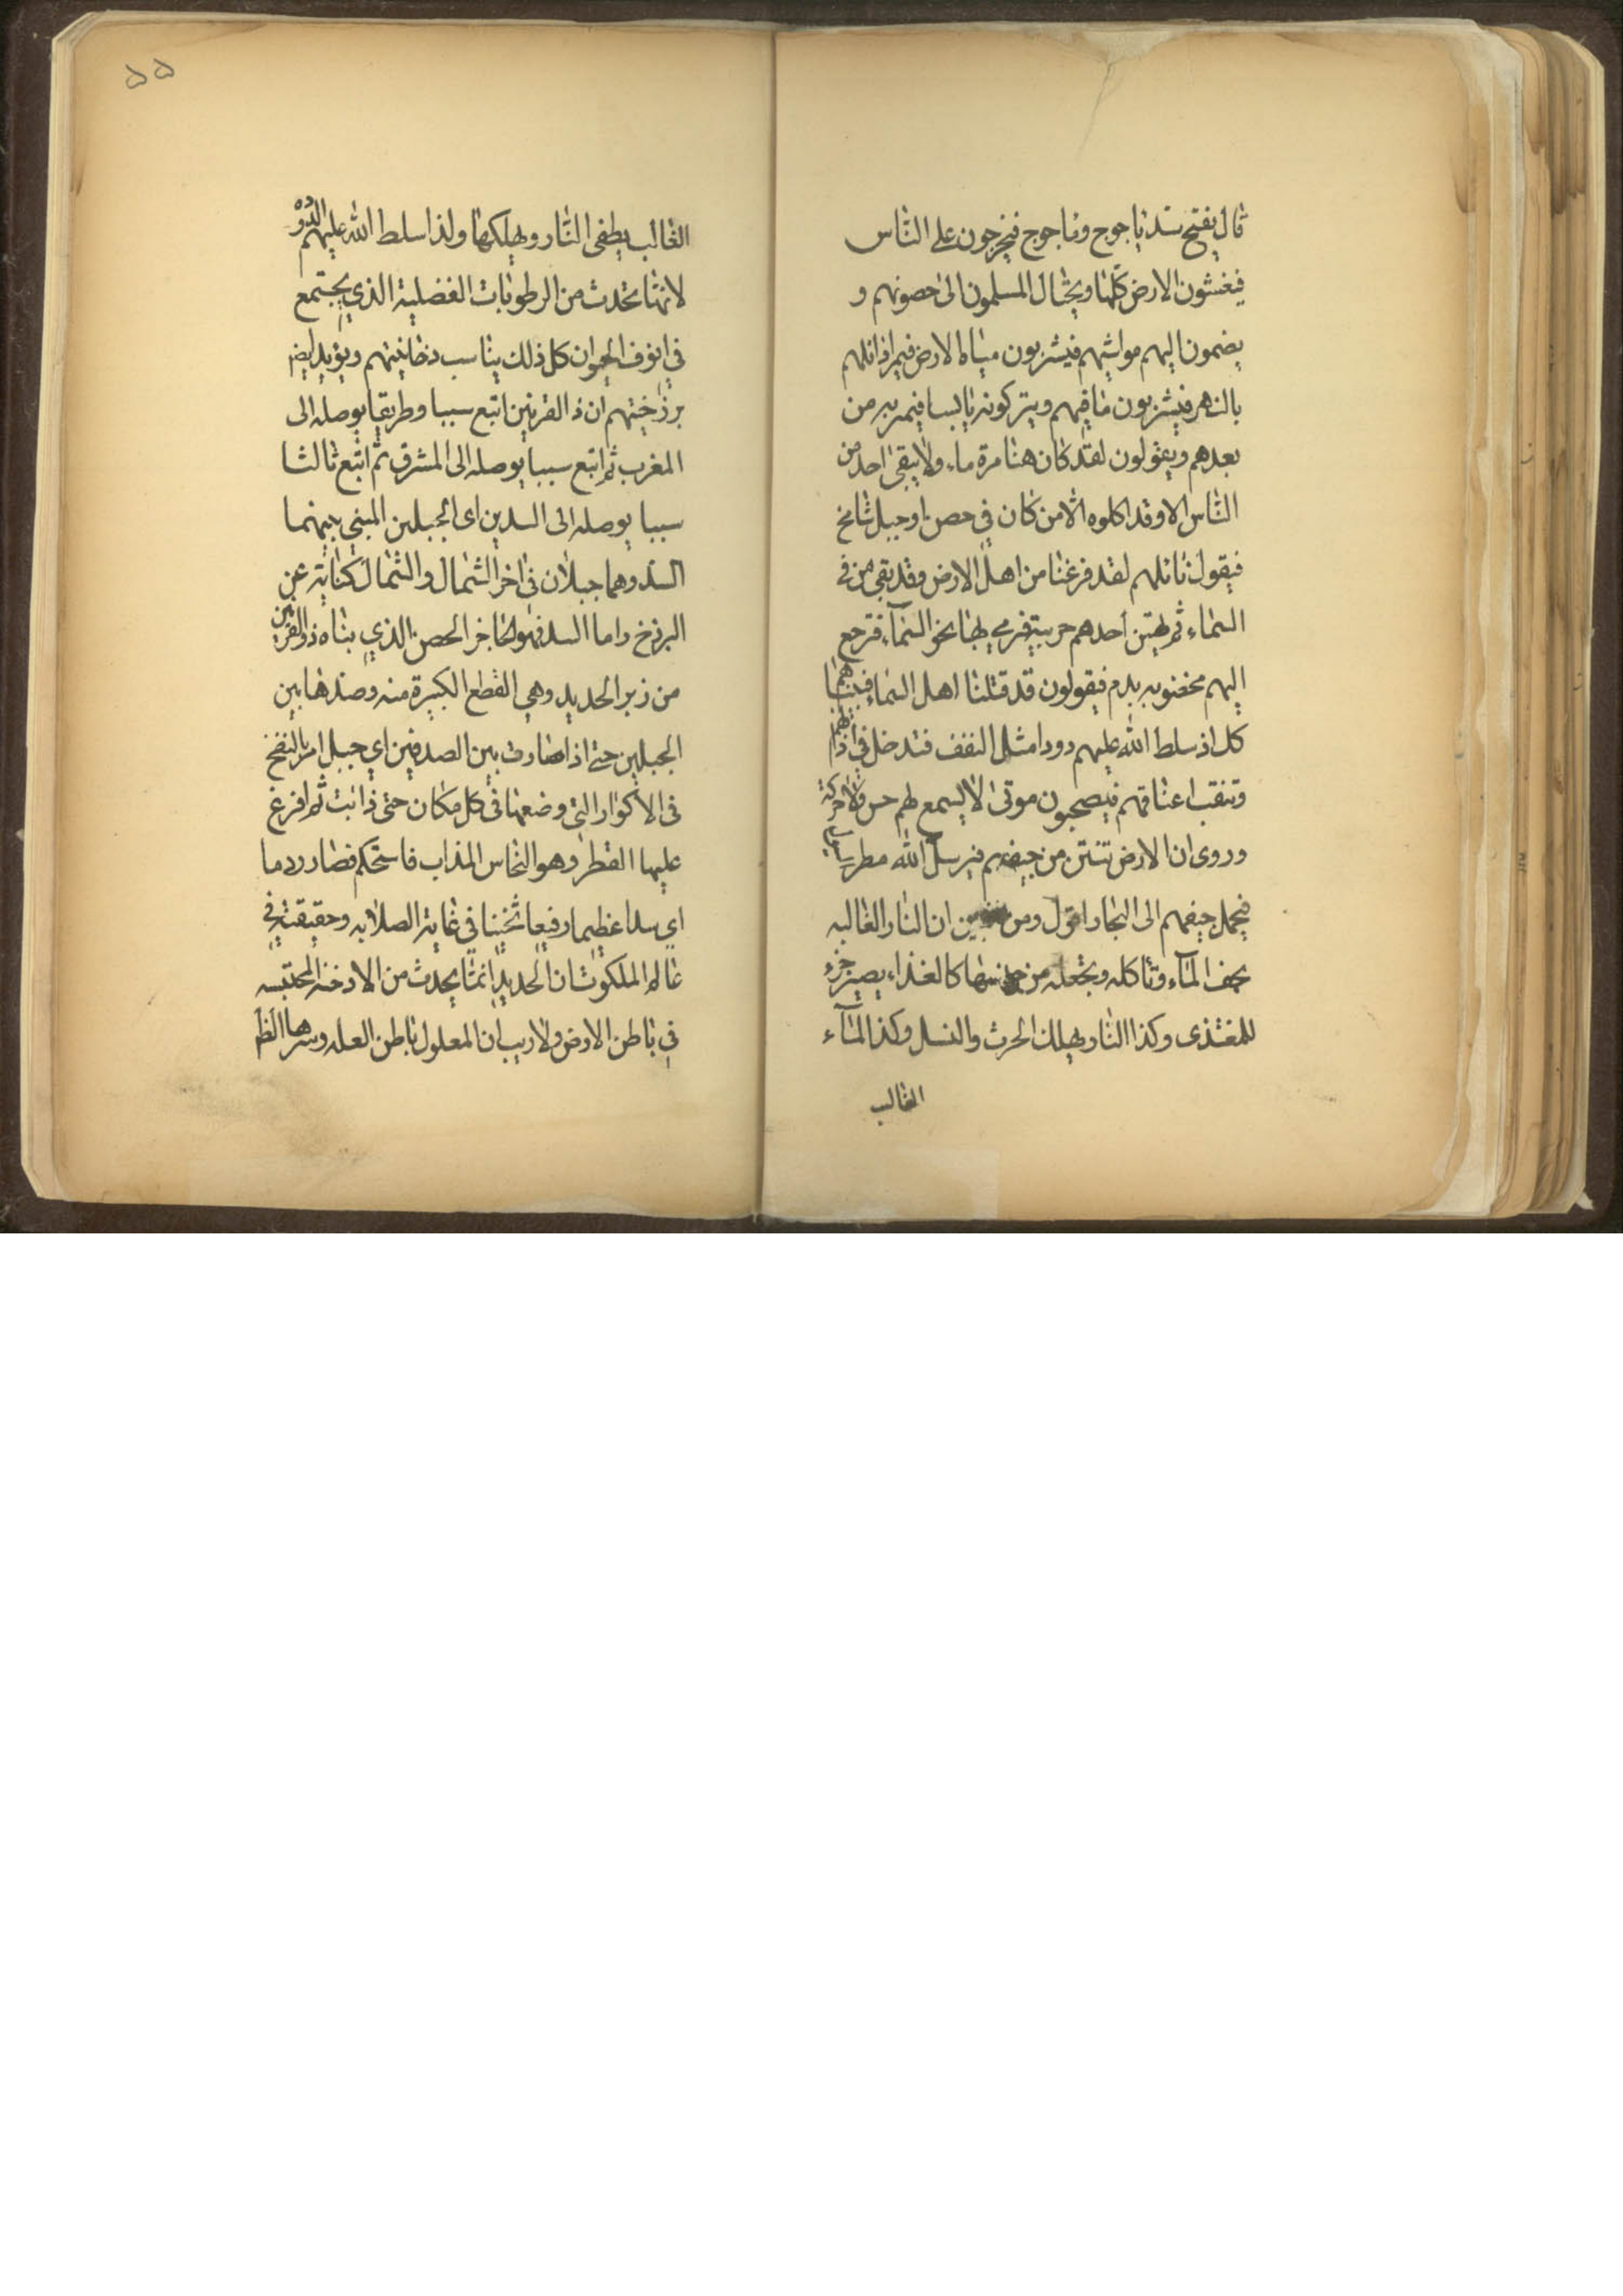 قال يفتح سد ياجوج وماجوج فيخرجون على الناس
فيغشون الارض كلها ويحتال المسلمون الى حصونهم و
يضمون اليهم مواشيهم فيشربون مياه الارض فيمر اوائلهم
بالنهر فيشربون ما فيهم ويتركونه يابسا فيمر به من
بعدهم ويقولون لقد كان هنا مرة ماء ولا يبقى احد من
الناس الا وقد اكلوه الا من كان في حصن او جبل شامخ
فيقول قائلهم لقد فرغنا من اهل الارض وقد بقى من في
السماء ثم يهتز احدهم حربته فيرمي بها نحو السماء فترجع
اليهم مخضوبه بدم فيقولون قد قتلنا اهل السماء فبينما هم
كل اذ سلط الله عليهم دودا مثل النغف فتدخل في اذانهم
وتنقب اعناقهم فيصبحون موتى لا يسمع لهم حس ولا حركة
وروى ان الارض تنتن من جيفهم فيرسل الله مطر
فيحمل جيفهم الى البحار اقول ومن ان النار الغالبه
يجف الماء وتاكله وتجعله من جنسها كالغذاء يصير جزء
للمغتذى وكذا النار يهلك الحرث والنسل وكذا الماء
الغالب
٥٥
الغالب يطفى النار ويهلكها ولذا سلط الله عليهم الدود
لانها تحدث من الرطوبات الفضلية الذي يجتمع
في انوف الحيوان كل ذلك يناسب دخانيتهم ويؤيد ايضا
برزخيتهم ان ذا القرنين اتبع سببا وطريقا يوصله الى
المغرب ثم اتبع سببا يوصله الى المشرق ثم اتبع ثالثا
سببا يوصله الى السدين اى الجبلين المبني بينهما
السد وهما جبلان في اخر الشمال والشمال كناية عن
البرزخ واما السد فهو الحاجز الحصن الذي بناه ذو القرنين
من زبر الحديد وهي القطع الكبيرة منه وصدها بين
الجبلين حتى اذا صارت بين الصدفين اي جبل امر بالنفخ
في الاكوار التي وضعها في كل مكان حتى ذابت ثم افرغ
عليها القطر وهو النحاس المذاب فاستحكم فصار ردما
اي سدا عظيما رفيعا ثخينا في غاية الصلابه وحقيقته في
عالم الملكوت ان الحديد انما يحدث من الادخنه المحتبسه
في باطن الارض ولا ريب ان المعلول باطن العله وسرها الظا